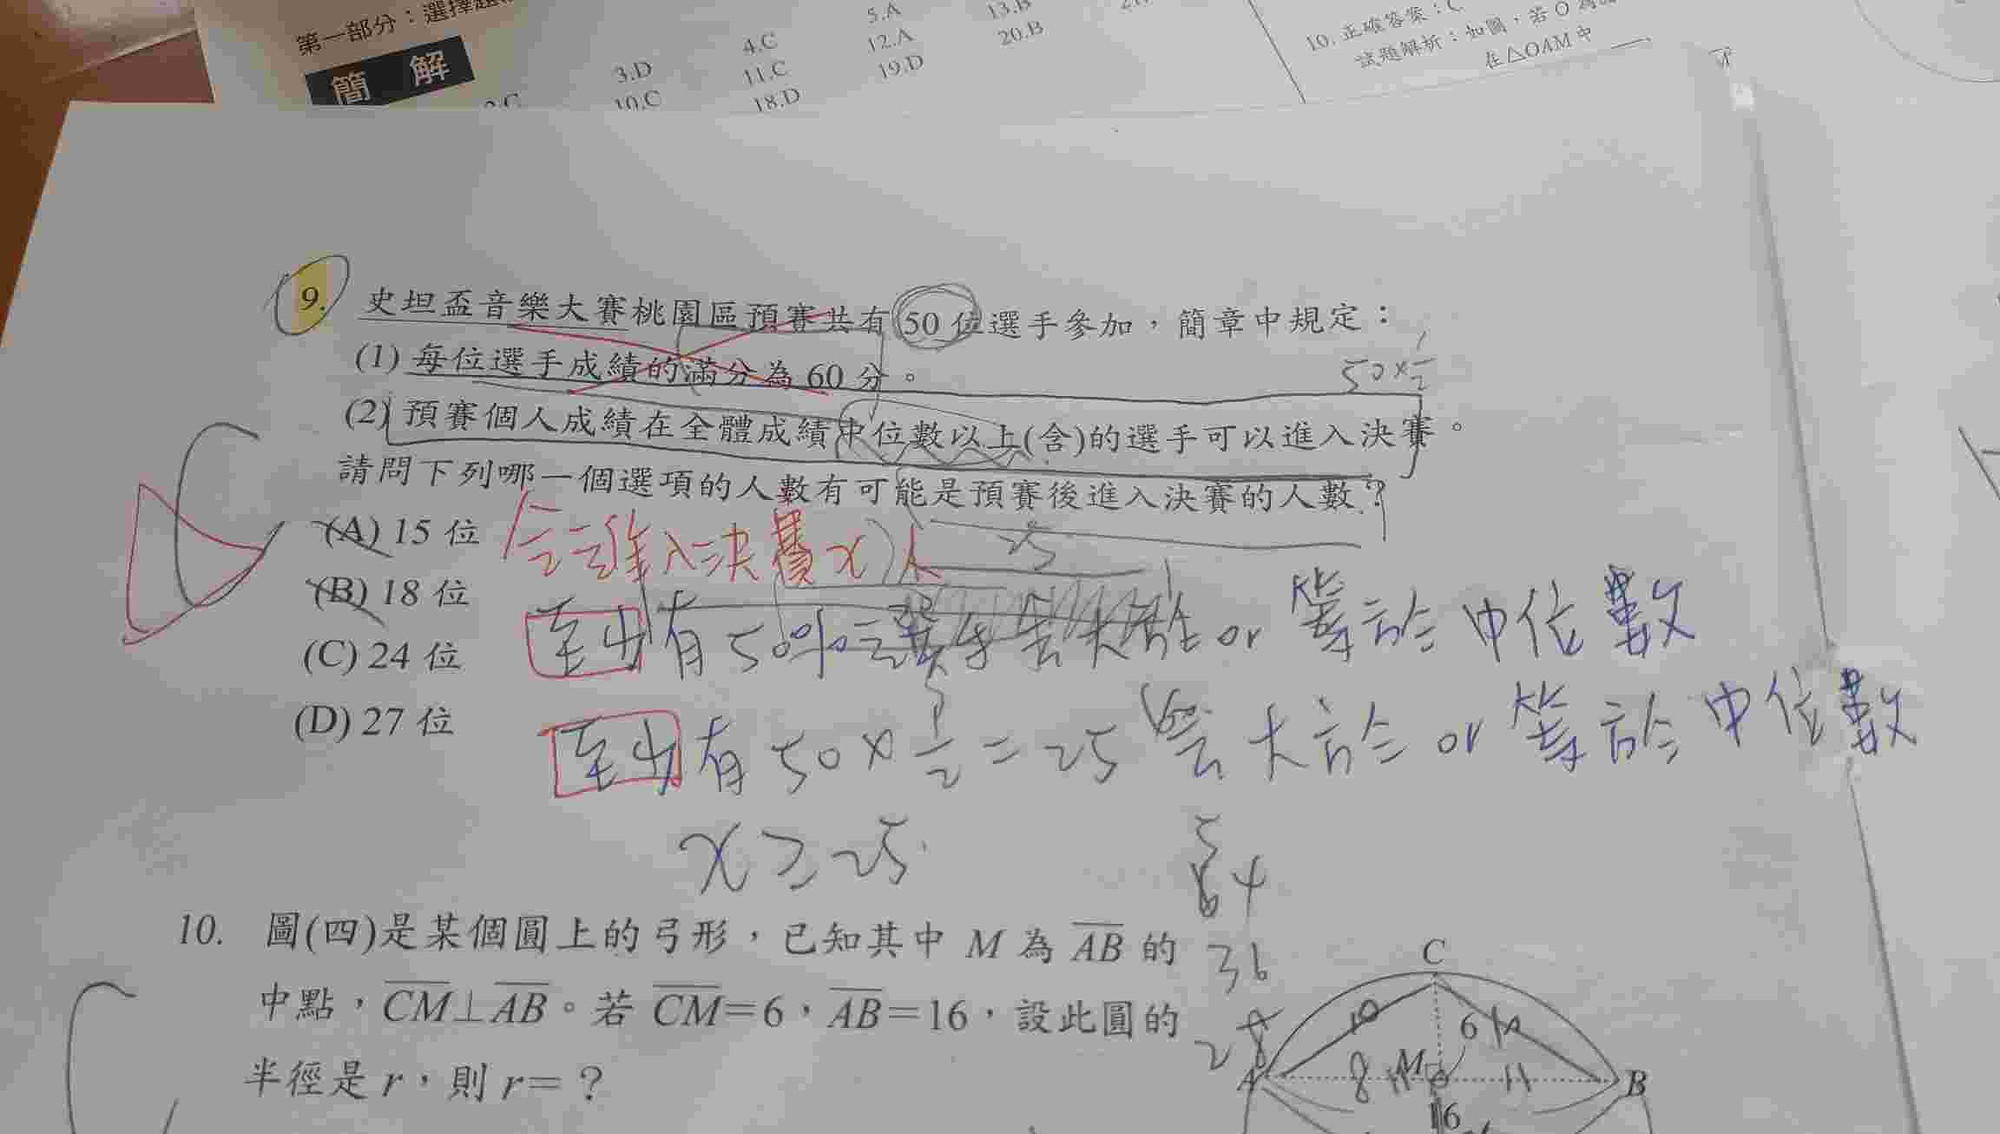 第一部分：選擇題
簡 解
3.D
4.C
5.A
13.B
10.C
11.C
12.A
20.B
18.D
19.D
10. 正確答案：C
試題解析：如圖，若 O 為
在△OAM 中
9. 史坦盃音樂大賽桃園區預賽共有 50 位選手參加，簡章中規定：
(1) 每位選手成績的滿分為 60 分。
50×1/2
(2) 預賽個人成績在全體成績中位數以上(含)的選手可以進入決賽。
請問下列哪一個選項的人數有可能是預賽後進入決賽的人數？
(A) 15 位
進入決賽x人
25
(B) 18 位
至少有50%選手會大於 or 等於中位數
(C) 24 位
(D) 27 位
至少有 50×1/2=25 位會大於 or 等於中位數
x≥25
64
36
28
10. 圖(四)是某個圓上的弓形，已知其中 M 為 AB 的
中點，CM⊥AB。若 CM=6，AB=16，設此圓的
半徑是 r，則 r=？
C
10
6
A
8
M
B
6